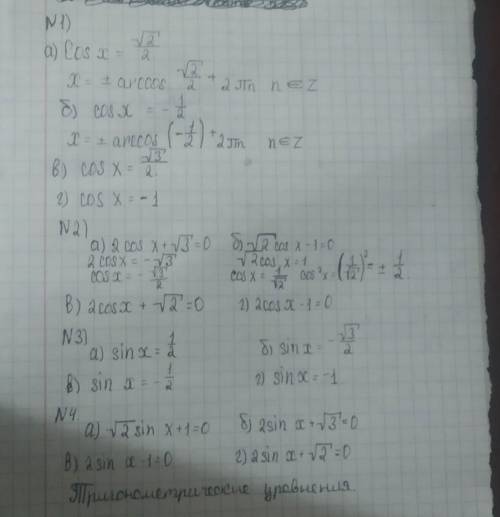 №1)
а) Cos x = √2/2
x = ± arccos √2/2 + 2πn n ∈ Z
б) cos x = - 1/2
x = ± arccos (-1/2) + 2πn n ∈ Z
в) cos x = √3/2
г) cos x = -1
№2)
а) 2 cos x + √3 = 0 б) √2 cos x - 1 = 0
2 cos x = -√3 √2 cos x = 1
cos x = - √3/2 cos x = 1/√2 cos²x = (1/√2)² = ± 1/2
в) 2cos x + √2 = 0 г) 2cos x - 1 = 0
№3)
а) sin x = 1/2 б) sin x = - √3/2
в) sin x = - 1/2 г) sin x = -1
№4.
а) √2 sin x + 1 = 0 б) 2sin x + √3 = 0
в) 2 sin x - 1 = 0 г) 2 sin x + √2 = 0
Тригонометрические уравнения.